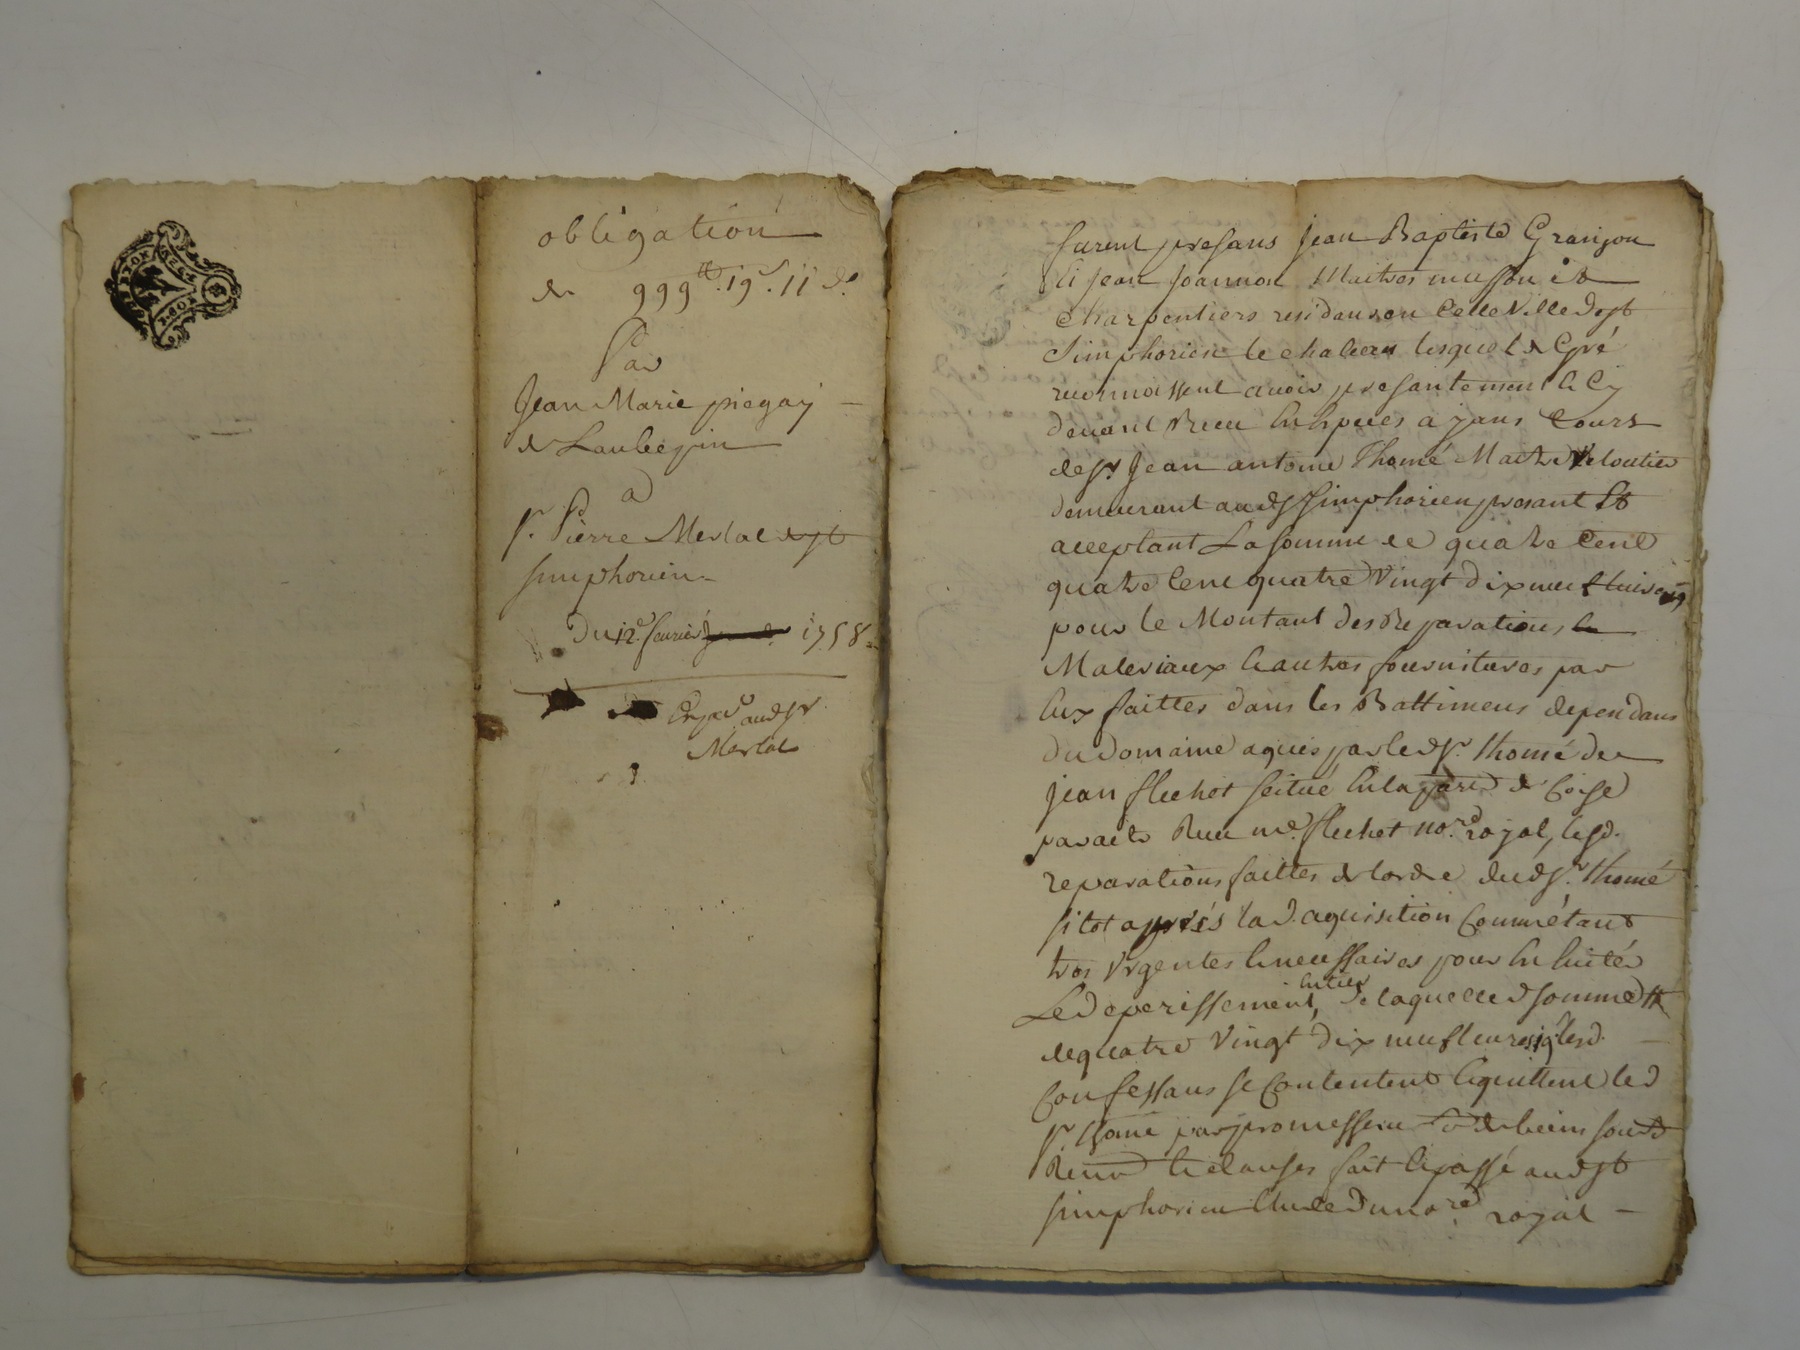 obligation
de 999ᵗᵗ. 19ˢ. 11 dˢ.
Par
Jean Marie piegay
de Laubepin
a
sʳ. Pierre Merlat de st
simphorien
Du 12ᵉ fevrier 1758
Expᵉ audsʳ
Merlat
furent presans Jean Baptiste Granjon
et Jean Joannon Maitres masson et
charpentiers residans en cette ville de st
simphorien le chateau lesquels de Gré
reconnaissent avoir presantement et cy
devant Receu en especes ayans Cours
de sʳ. Jean antoine Thomé Maitre Veloutier
demeurant aud st simphorien presant Et
acceptant La somme de quatre Cent
quatre Cent quatre Vingt dix neuf
pour le Montant des Reparations
Materiaux et autres fournitures par
eux faittes dans les Battimens dependans
du domaine aquis par led sʳ. thomé de
jean flechot scitué en la parᵉ de Coise
par acte Receu mᵉ. flechot noʳᵉ royal, lesd.
reparations faittes de lordre dud sʳ. thomé
sitot après lad. aquisition comme étant
tres Urgentes et necessaires pour en Eviter
Le deperissement entier, de laquelle d somme
de quatre Vingt dix neuf livres 19ˢ lesd.
Confessans se Contentent et quittent led
sʳ. thomé par promesse de biens soumᵈ
Renoᵈ et clauses fait et passé aud st
simphorien Etude du noʳᵉ. royal